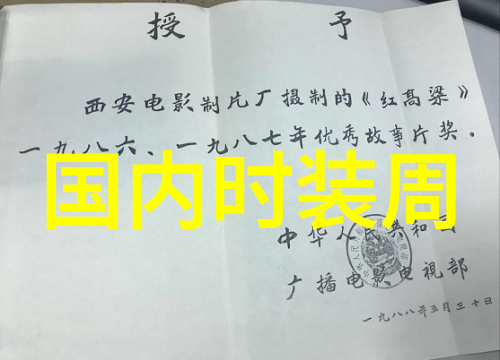 授 予
西安电影制片厂摄制的《红高粱》
一九八六、一九八七年优秀故事片奖。
国内时装周
中华人民共和国
广播电影电视部
一九八八年三月三十日